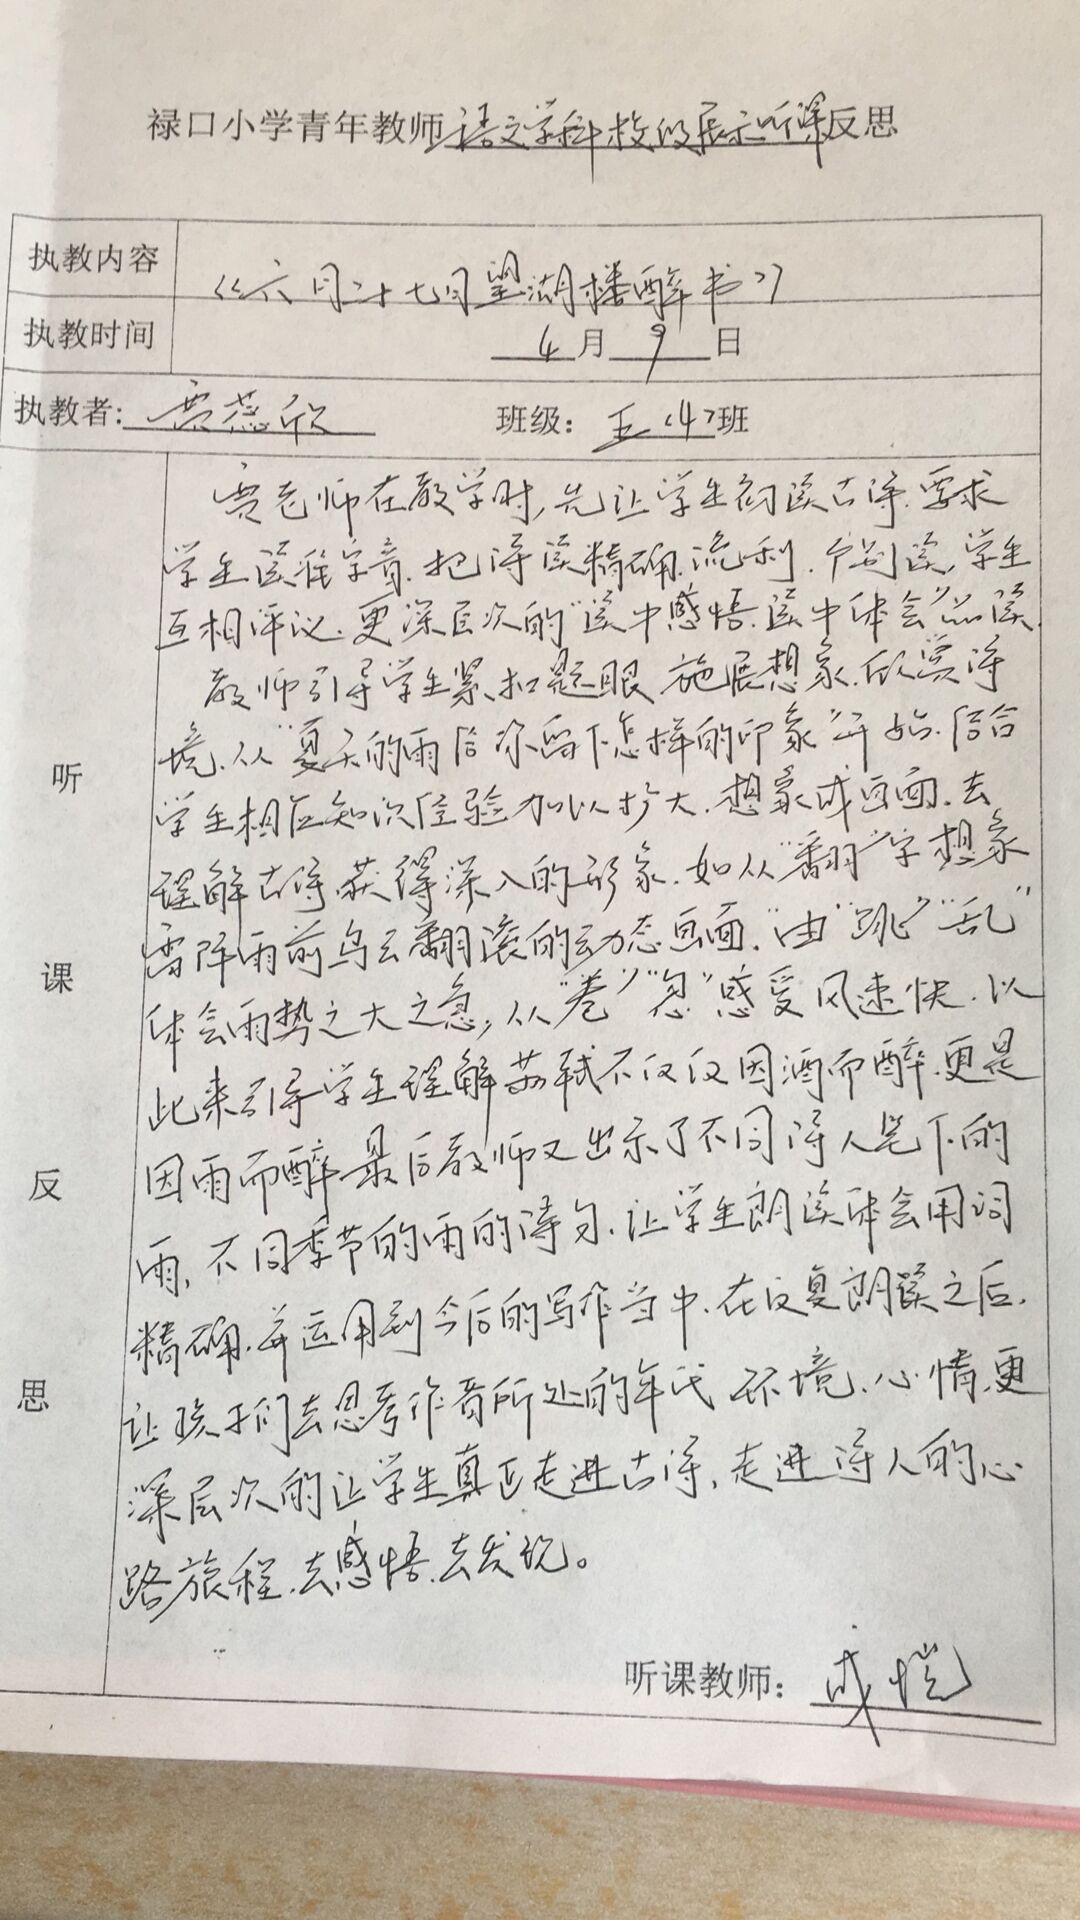 禄口小学青年教师语文学科教研展示听课反思
执教内容
《六月二十七日望湖楼醉书》
执教时间
4月9日
执教者:贾蕊欣 班级：五〈4〉班
贾老师在教学时,先让学生初读古诗.要求
学生读准字音.把诗读精确.流利.个别读,学生
互相评议.更深层次的"读中感悟.读中体会"品读.
教师引导学生紧扣题眼 施展想象.欣赏诗
境.从"夏天的雨给你留下怎样的印象"开始.结合
学生相应知识经验加以扩大.想象成画面.去
理解古诗,获得深入的形象.如从"翻"字想象
雷阵雨前乌云翻滚的动态画面."由"跳""乱"
体会雨势之大之急,从"卷""忽"感受风速快.以
此来引导学生理解苏轼不仅仅因酒而醉.更是
因雨而醉.最后教师又出示了不同诗人笔下的
雨,不同季节的雨的诗句.让学生朗读体会用词
精确.并运用到今后的写作当中.在反复朗读之后.
让孩子们去思考作者所处的年代 环境.心情,更
深层次的让学生真正走进古诗,走进诗人的心
路旅程.去感悟.去发现。
听
课
反
思
听课教师：成恺